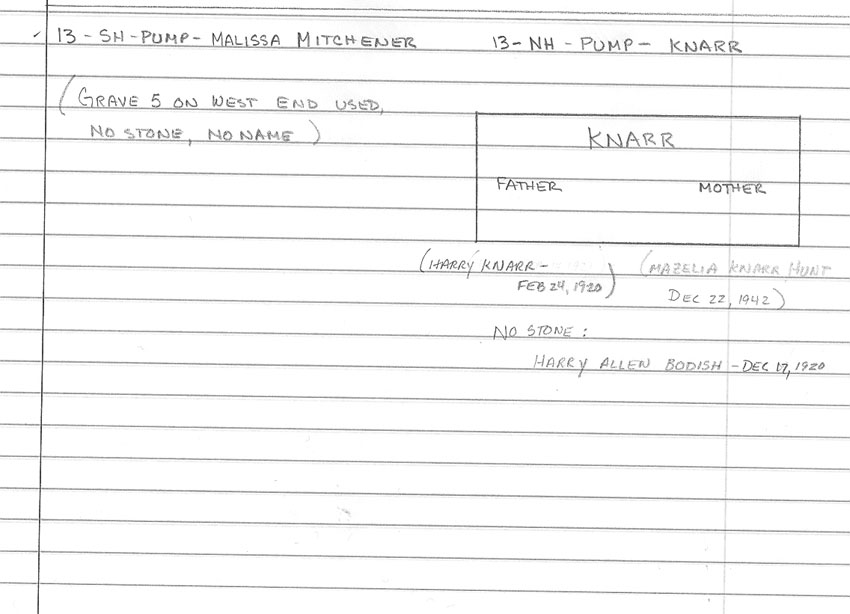 ✓ 13-SH-PUMP-MALISSA MITCHENER
13-NH-PUMP-KNARR
(GRAVE 5 ON WEST END USED,
NO STONE, NO NAME)
KNARR
FATHER MOTHER
(HARRY KNARR-
FEB 24, 1920)
(MAZELIA KNARR HUNT
DEC 22, 1942)
NO STONE:
HARRY ALLEN BODISH - DEC 17, 1920